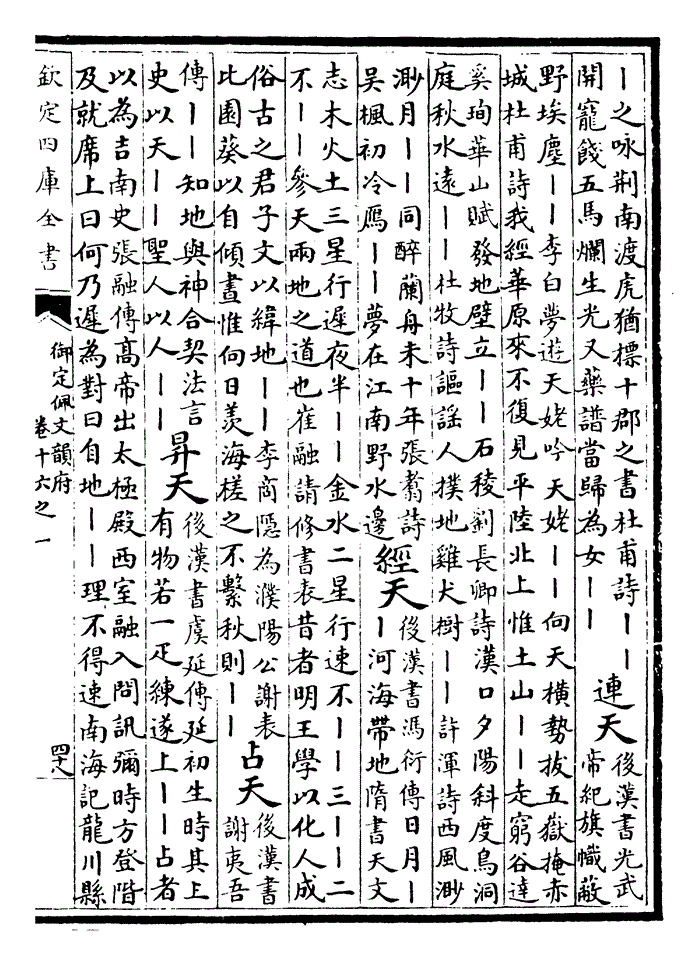 ｜之咏荆南渡虎猶標十郡之書杜甫詩｜｜
開寵餞五馬爛生光又藥譜當歸為女｜｜
連天
後漢書光武
帝紀旗幟蔽
野埃塵｜｜李白夢遊天姥吟天姥｜｜向天橫勢拔五嶽掩赤
城杜甫詩我經華原來不復見平陸北上惟土山｜｜走窮谷達
奚珣華山賦發地壁立｜｜石稜劉長卿詩漢口夕陽斜度鳥洞
庭秋水遠｜｜杜牧詩謳謠人撲地雞犬樹｜｜許渾詩西風渺
渺月｜｜同醉蘭舟未十年張翥詩
吳楓初冷鴈｜｜夢在江南野水邊
經天
後漢書馮衍傳日月｜
｜河海帶地隋書天文
志木火土三星行遲夜半｜｜金水二星行速不｜｜三｜｜二
不｜｜參天兩地之道也崔融請修書表昔者明王學以化人成
俗古之君子文以緯地｜｜李商隱為濮陽公謝表
比園葵以自傾晝惟向日羨海槎之不繫秋則｜｜
占天
後漢書
謝夷吾
傳｜｜知地與神合契法言
史以天｜｜聖人以人｜｜
昇天
後漢書虞延傳延初生時其上
有物若一疋練遂上｜｜占者
以為吉南史張融傳高帝出太極殿西室融入問訊彌時方登階
及就席上曰何乃遲為對曰自地｜｜理不得速南海記龍川縣
欽定四庫全書
御定佩文韻府
卷十六之一
四十八